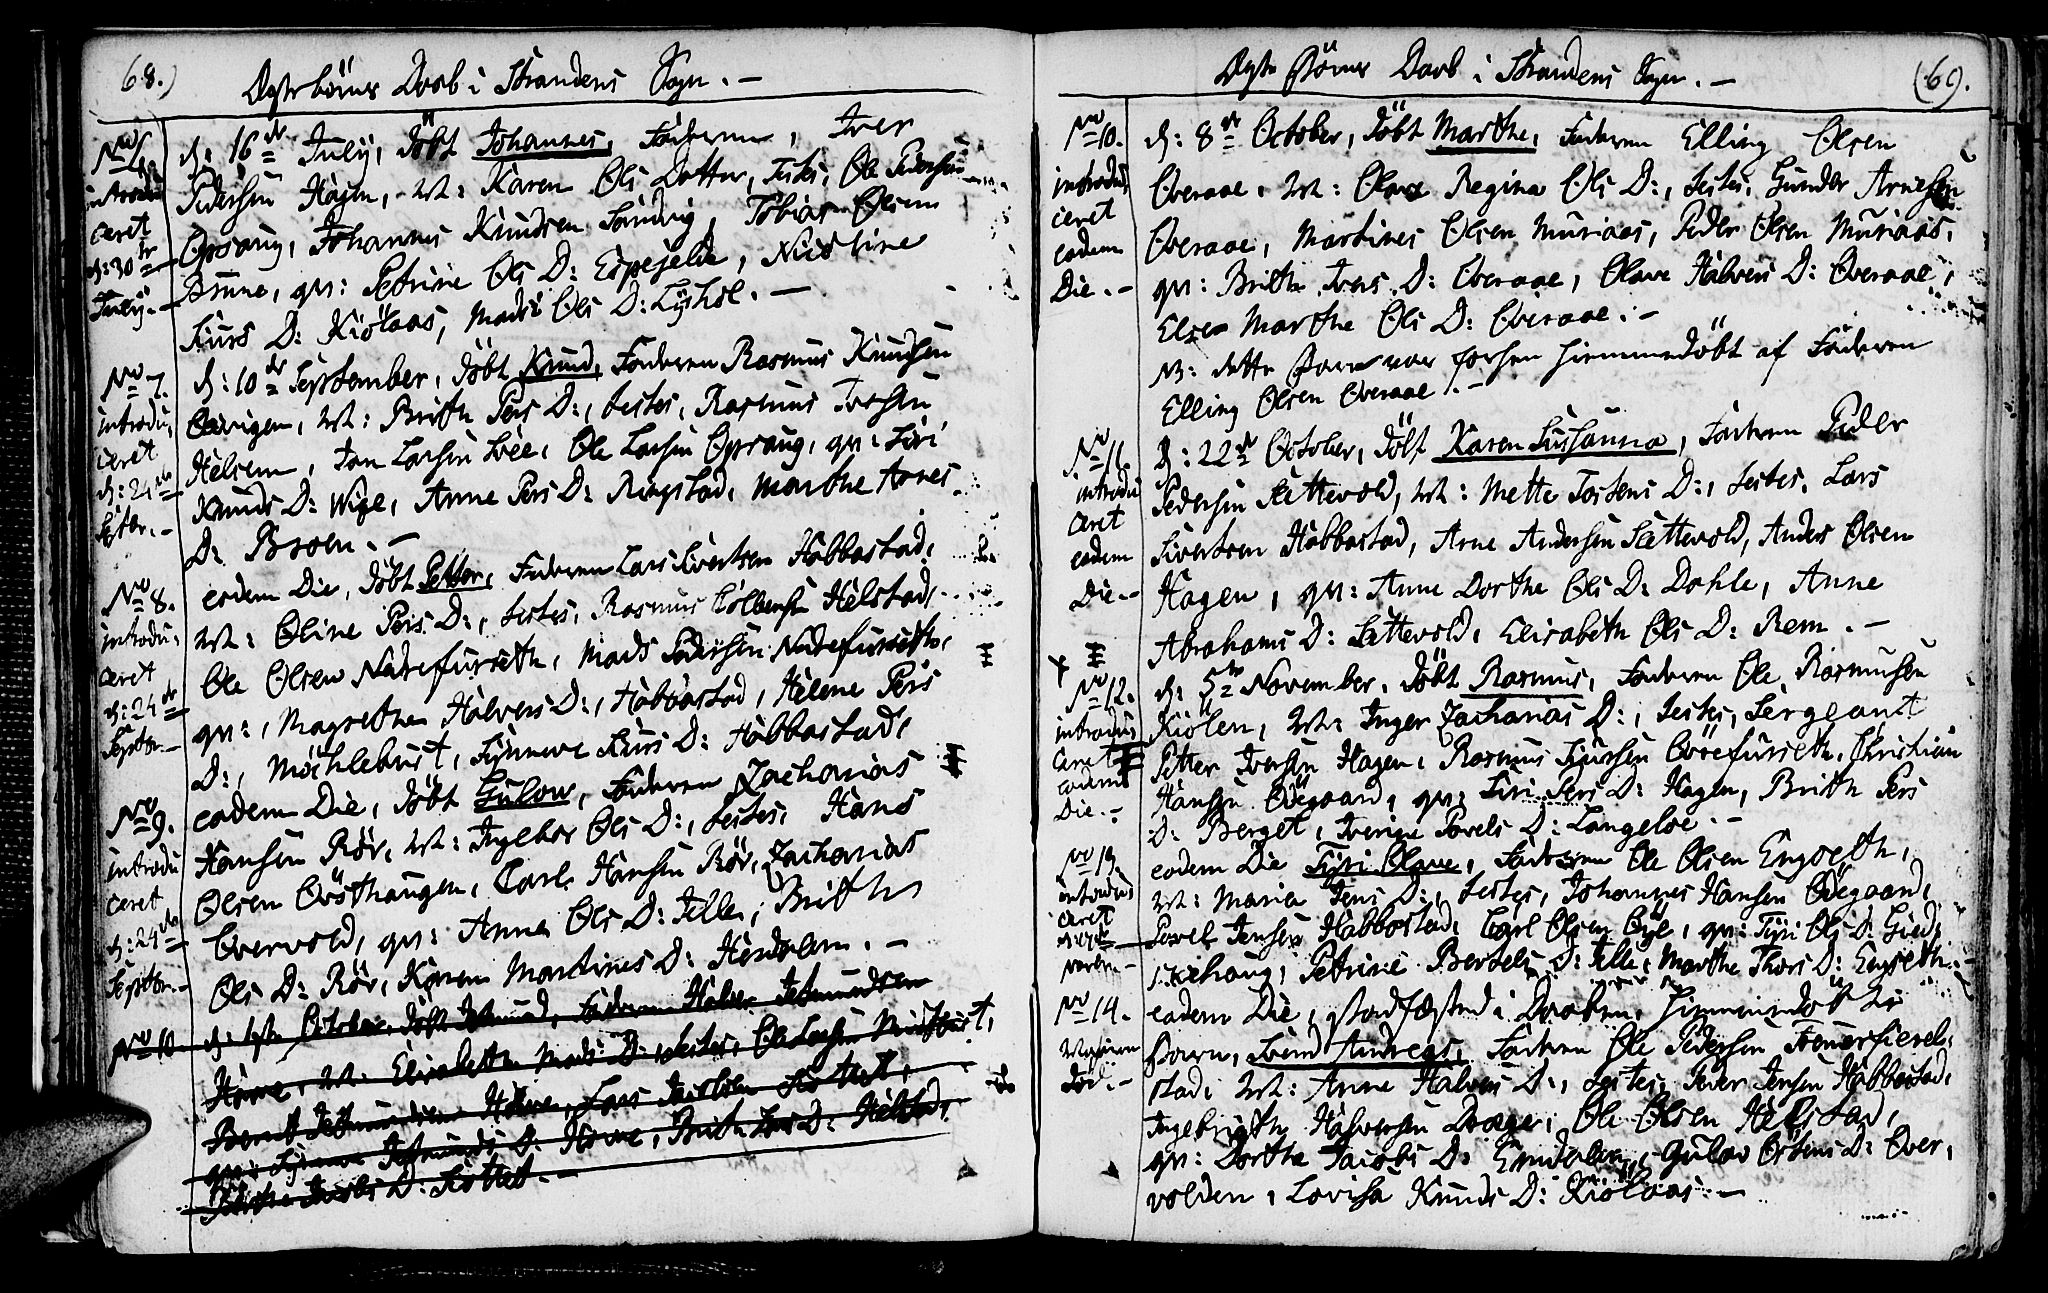 68.)
Ægte börns Daab i Strandens Sogn. –
No 6.
introdu
ceret
d: 30te
July. –
d: 16de July, döbt Johannes, Faderen, Iver
Pedersen Hagen, M: Karen Ols Dotter, Testes, Ole Pedersen
Opsaug, Johannes Knudsen Sandvig, Tobias Olsen
Brune, qv: Petrine Ols D: Espejelde,
Siurs D: Kiölaas, Mads Ols D: Lyhol. –
No 7.
introdu,
ceret
d: 24de
Septbr. –
d: 10de September, döbt Knud, Faderen Rasmus Knudsen
M: Brith Pers D:, testes, Rasmus Iversen
Helsem, Jon Larsen Lvee, Ole Larsen Opsaug, qv: Siri
Knuds D: Wige, Anne Pers D: Ringstad, Marthe Arnes
D: Broen. –
No 8.
introdu,
ceret
d: 24de
Septbr. –
eodem Die, döbt Petter, Faderen Lars Sivertsen Habbostad,
M: Oline Pers D:, testes, Rasmus Kolbensen Helstad,
Ole Olsen Nærefurseth, Mads Pedersen Nærefurseth,
qv:, Magrethe Halvers D:, Habbostad, Helene Pers
D:, Möchlebust, Synneve Siurs D: Habbostad,
No 9.
introdu
ceret
d: 24de
Septbr. –
eodem Die, döbt Gulow, Faderen Zacharias
Hansen Rör, M: Ingebor Ols D:, testes, Hans
Olsen Övsthaugen, Carl Hansen Rör, Zacharias
Overvold, qv: Anne Ols D: Telle, Brith
Ols D: Rör, Karen Martines D: Hesdalen. –
No 10
d: 1ste October, döbt Jetmund, Faderen Halvor Jetmundsen
Hovre, M: Elisabeth Mads D:, testes, Ole Larsen
Bernt Jetmundsen Hovre, Lars Jacobsen
qv: Synneve Jetmunds D: Hovre, Brith Lars D: Helstad,
Jacobs D: –
(69.
Ægte Börns Daab i Strandens Sogn. –
No 10.
introdu,
ceret
eodem
Die. –
d: 8de October, döbt Marthe, Faderen Elling Olsen
Overaae, M: Olava Regina Ols D:, testes, Gunder Arnesen
Overaae, Martines Olsen Muriaas, Peder Olsen Muriaas,
qv: Brith Ivers D: Overaae, Olave Halvers D: Overaae,
Elsen Marthe Ols D: Overaae. –
NB: dette Barn var forhen hiemmedöbt af Faderen
Elling Olsen Overaae. –
No 11.
introdu
ceret
eodem
Die. –
d: 22de October, döbt Karen Susanna, Faderen Peder
Pedersen Sættevold, M: Mette Tostens D:, testes, Lars
Sivertsen Habbostad, Arne Andersen Sættevold, Anders Olsen
Hagen, qv: Anne Dorthe Ols D: Dahle, Anne
Abrahams D: Sættevold, Elisabeth Ols D: Rem. –
No 12.
introdu,
ceret
eodem
Die. –
d: 5te November, döbt Rasmus, Faderen Ole Rasmusen
Kiölen, M: Inger Zacharias D:, testes, Sergeant
Petter Iversen Hagen, Rasmus Siursen Övrefurseth, Christian
Hansen Ödegaard, qv: Siri Pers D: Hagen, Brith Pers
D: Berget, Iverine Povels D: Langeloe. –
No 13.
introdu,
ceret
eodem Die Siri Olave, Faderen Ole Olsen Engseth,
M: Maria Jens D:, testes, Johannes Hansen Ödegaard,
Povel Jensen Habbostad, Carl Olsen qv: Siri Ols D: Gied,
rehaug, Petrine Bertels D: Telle, Marthe Thors D: Engseth. –
No 14.
Moderen
död. –
eodem Die, stadfæsted i Daaben, Himmedöbt
Barn, Svend Andreas, Faderen Ole Pedersen
stad, M: Anne Halvers D:, testes, Peder Jensen Habbostad,
Ingebrigth Halvorsen Drage, Ole Olsen Helstad,
qv: Dorthe Jacobs D: Gulov Östens D: Over,
volden, Lovisa Knuds D: Kiölaas. –